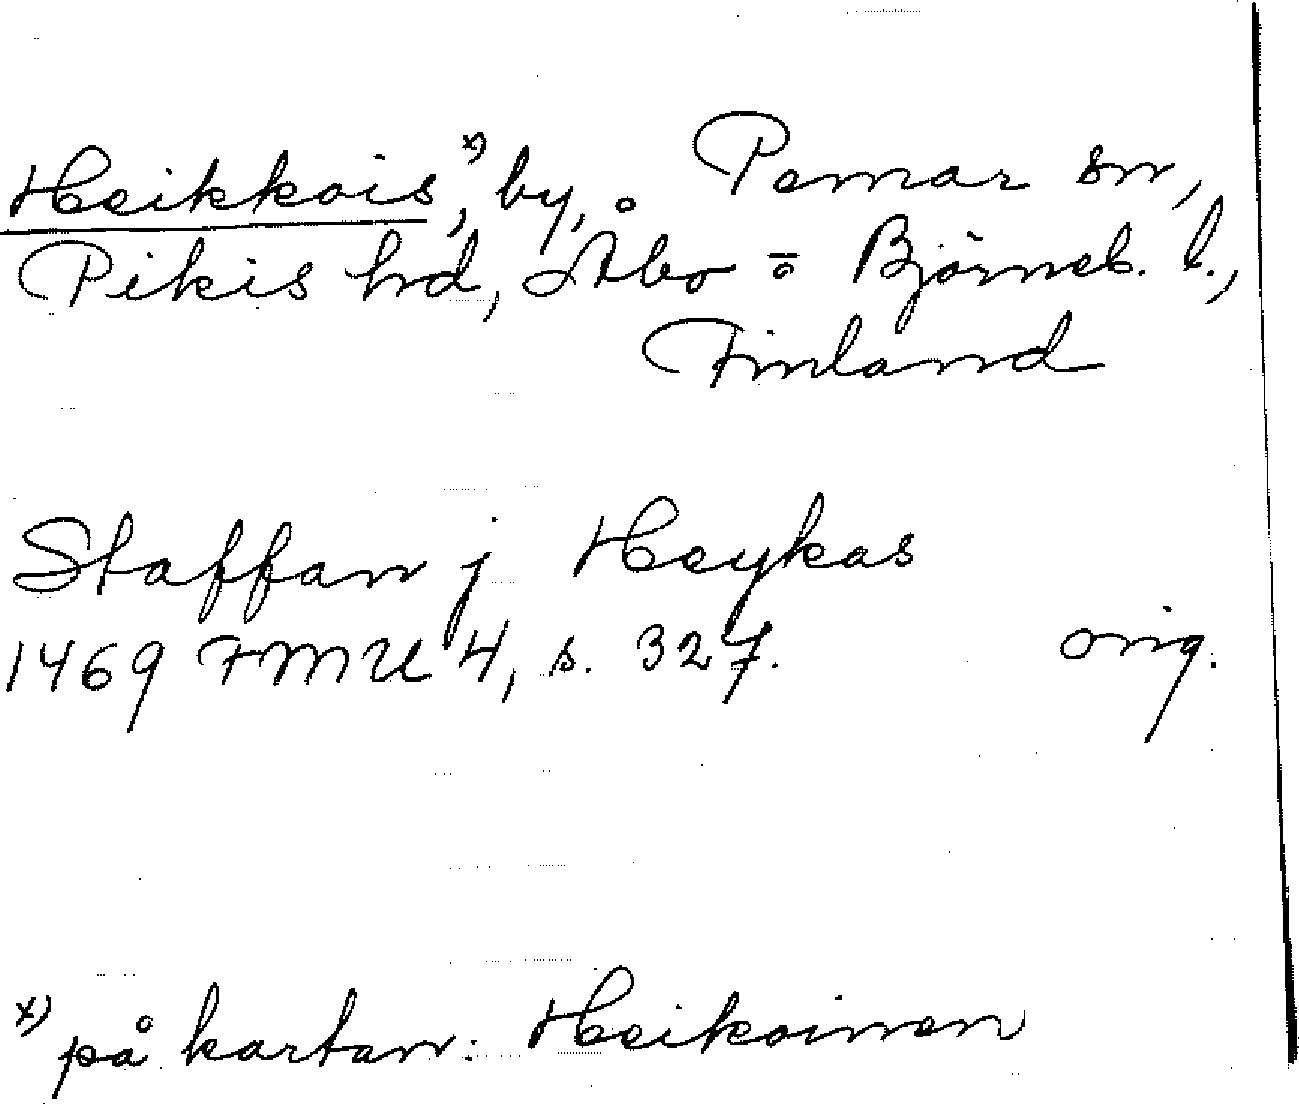 Heikkois,ˣ⁾ by, Pemar sn,
Pikis hd, Åbo o Björneb. l.,
Finland
Staffan j Heykas
1469 FMU 4, s. 327. orig.
ˣ⁾ på kartan: Heikoinen